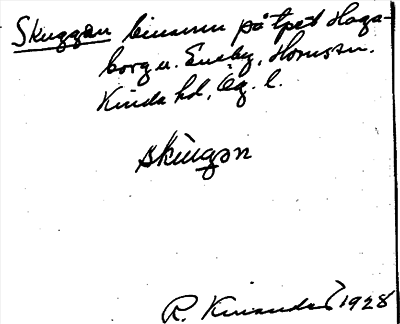 Skuggan binamn på tpet Haga-
borg u. Eneby, Hornsn.
Kinda hd, Ög. l.
skugan
R. Kinander 1928